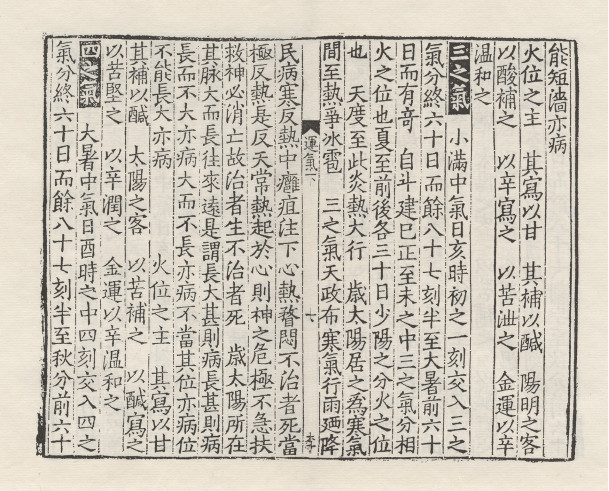 能短濇亦病
火位之主 其寫以甘 其補以鹹 陽明之客
以酸補之 以辛寫之 以苦泄之 金運以辛
温和之
三之氣 小滿中氣日亥時初之一刻交入三之
氣分終六十日而餘八十七刻半至大暑前六十
日而有竒 自斗建巳正至未之中三之氣分相
火之位也夏至前後各三十日少陽之分火之位
也 天度至此炎熱大行 歲太陽居之爲寒氣
間至熱爭冰雹 三之氣天政布寒氣行雨廼降
運氣下 六
民病寒反熱中癰疽注下心熱瞀悶不治者死當
極反熱是反天常熱起於心則神之危極不急扶
救神必消亡故治者生不治者死 歲太陽所在
其脉大而長往來遠是謂長大甚則病長甚則病
長而不大亦病大而不長亦病不當其位亦病位
不能長大亦病 火位之主 其寫以甘
其補以鹹 太陽之客 以苦補之 以鹹寫之
以苦堅之 以辛潤之 金運以辛温和之
四之氣 大暑中氣日酉時之中四刻交入四之
氣分終六十日而餘八十七刻半至秋分前六十